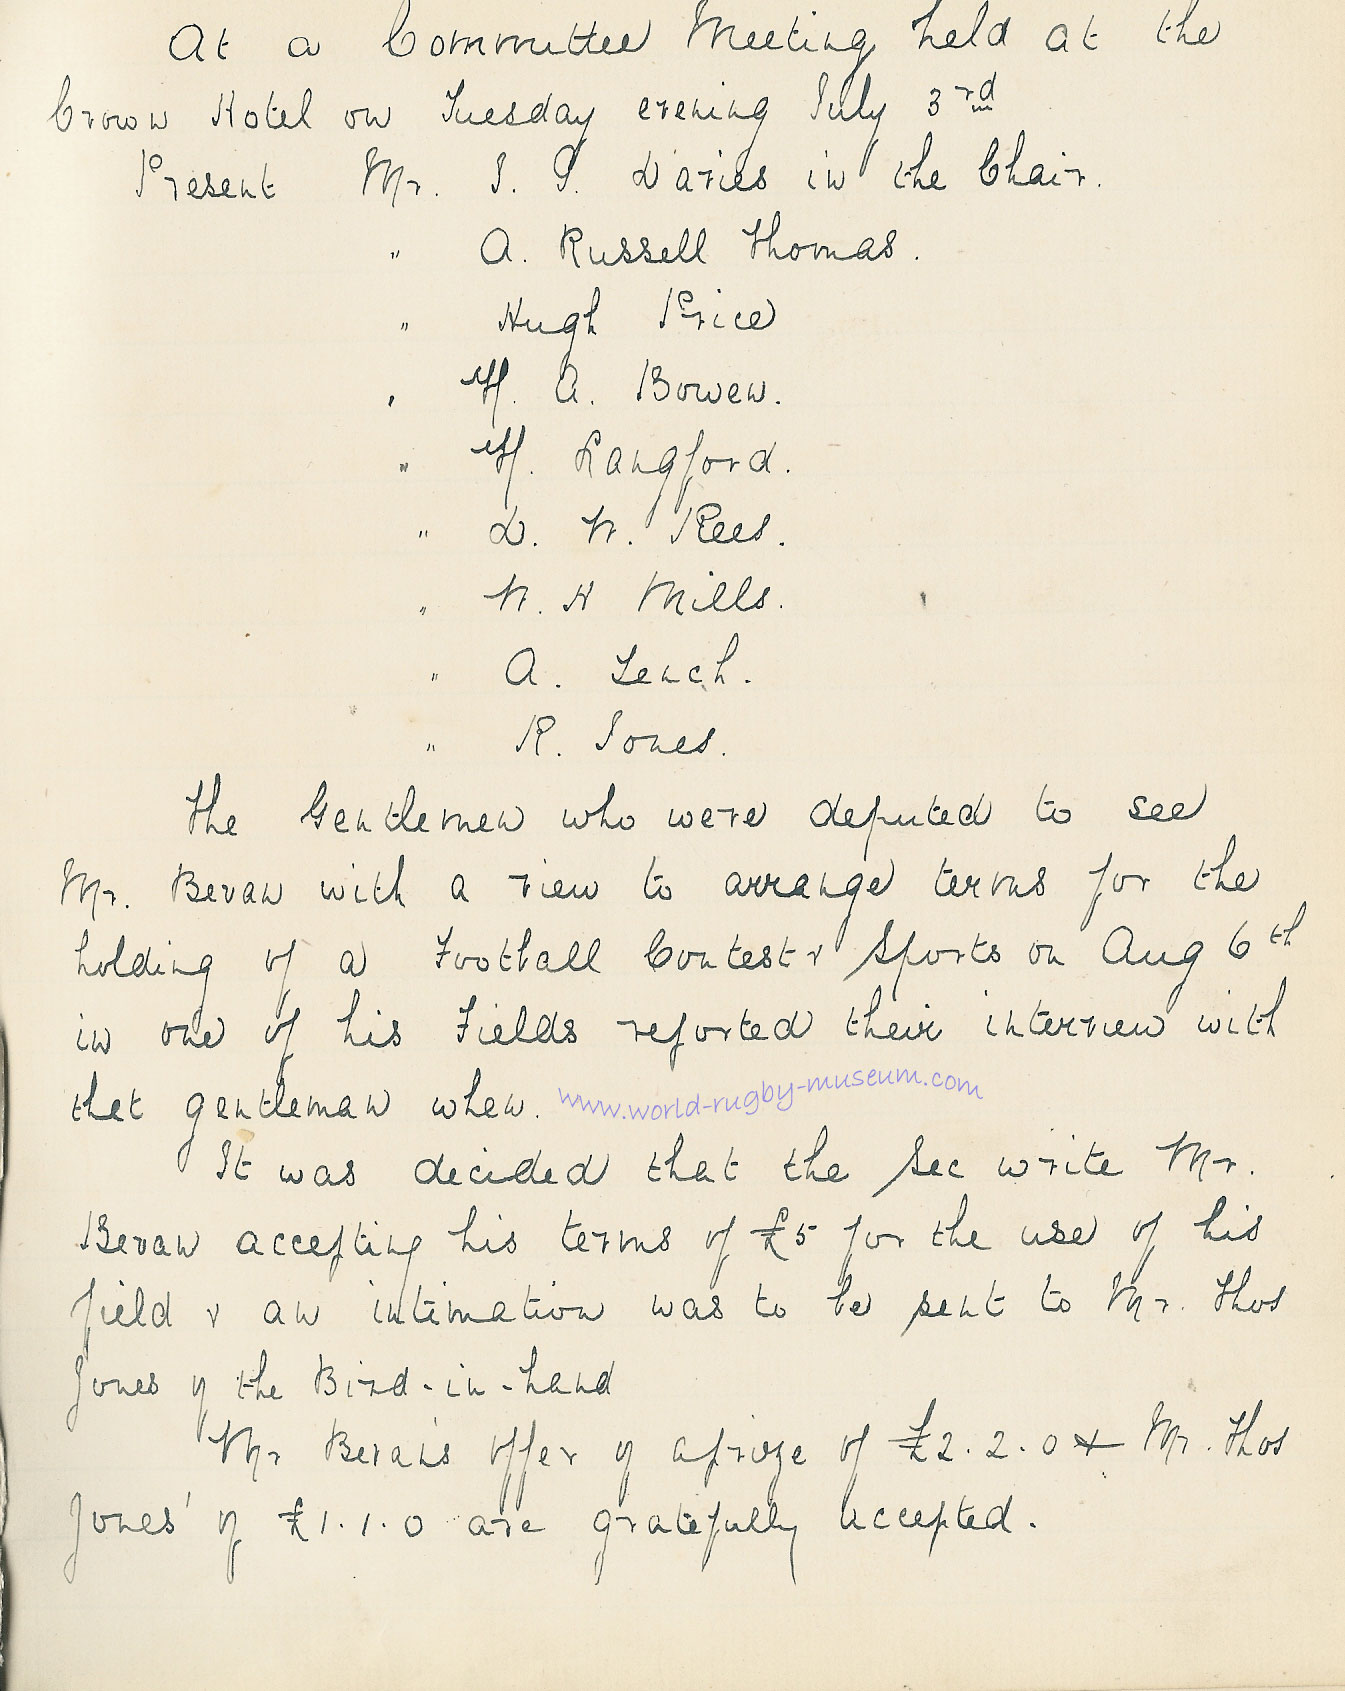 At a Committee Meeting held at the
Crown Hotel on Tuesday evening July 3rd
Present Mr. J. P. Davies in the Chair.
" A. Russell Thomas.
" Hugh Price
" H. A. Bowen.
" H. Langford.
" D. W. Rees.
" W. H Mills.
" A. Tench.
" R. Jones.
The Gentlemen who were deputed to see
Mr. Bevan with a view to arrange terms for the
holding of a Football Contest & Sports on Aug 6th
in one of his Fields reported their interview with
thet gentleman when.
www.world-rugby-museum.com
It was decided that the Sec write Mr.
Bevan accepting his terms of £5 for the use of his
field & an intimation was to be sent to Mr. Thos
Jones of the Bird-in-hand
Mr Bevan's offer of a prize of £2.2.0 & Mr. Thos
Jones' of £1.1.0 are gratefully accepted.